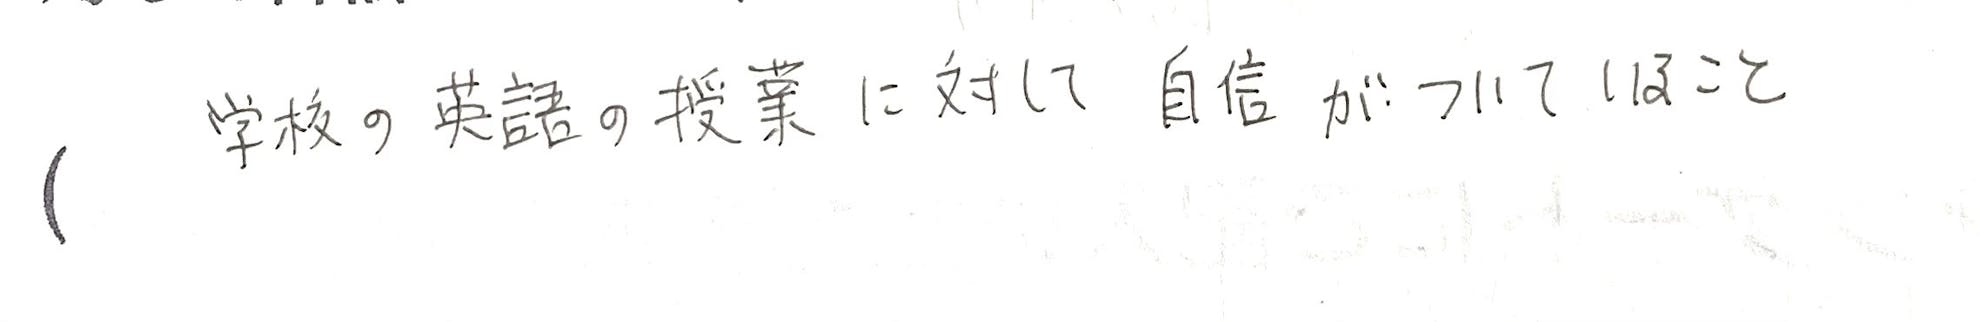 学校の英語の授業に対して 自信がついていること
(